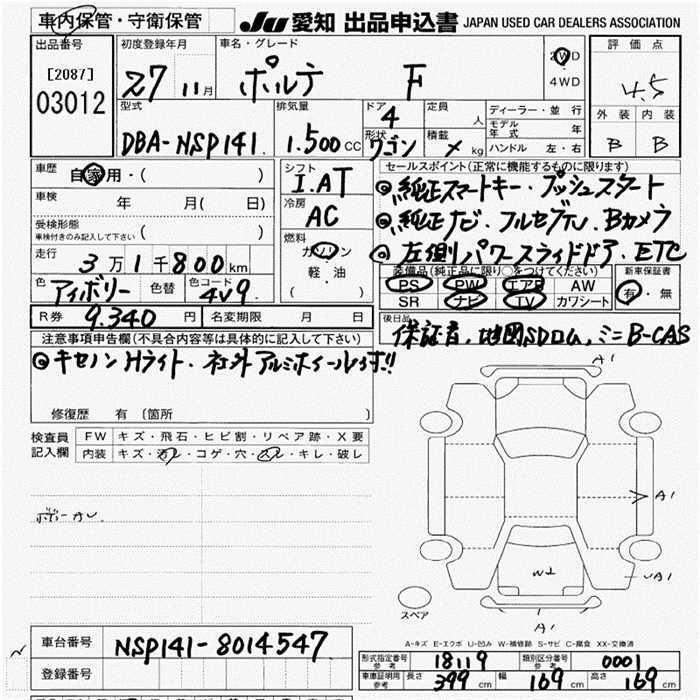 車内保管・守衛保管 JU 愛知 出品申込書 JAPAN USED CAR DEALERS ASSOCIATION
出品番号 初度登録年月 車名・グレード 評価点
[2087] 27 11月 ポルテ F 2WD 4.5
03012 4WD
型式 排気量 ドア 4 定員 人 ディーラー・並行 外装 内装
モデル年式 年
DBA-NSP141 1.500cc 形状 ワゴン 積載 kg ハンドル 左・右 B B
車歴 自家用・( ) シフト I.AT セールスポイント(正常に機能するものに限ります)
◎純正スマートキー・プッシュスタート
車検 年 月( 日) 冷房 AC ◎純正ナビ・フルセグTV・Bカメラ
受検形態
車検付きのみ記入して下さい ( ) 燃料 ガソリン ◎左側パワースライドドア・ETC
走行 3万1千800km 軽・油 装備品(純正品に限り○をつけてください) 新車保証書
( ) PS PW エアB AW 有・無
色 アイボリー 色替 色コード 4V9 SR ナビ TV カワシート
R券 9.340円 名変期限 月 日 後日品
保証書.地図SDロム.ミニB-CAS
注意事項申告欄(不具合内容等は具体的に記入して下さい)
◎キセノンHライト・社外アルミホイール付!!
A1
修復歴 有(箇所 )
検査員 FW キズ・飛石・ヒビ割・リペア跡・X要
記入欄 内装 キズ・汚レ・コゲ・穴・スレ・キレ・破レ
A1
A1
スペア
A1
A-キズ E-エクボ U-凹み W-補修跡 S-サビ C-腐食 XX-交換済
車台番号 NSP141-8014547
型式指定番号 参考 18119 類別区分番号 参考 0001
登録番号 車庫証明用 参考 長さ 399cm 幅 169cm 高さ 169cm